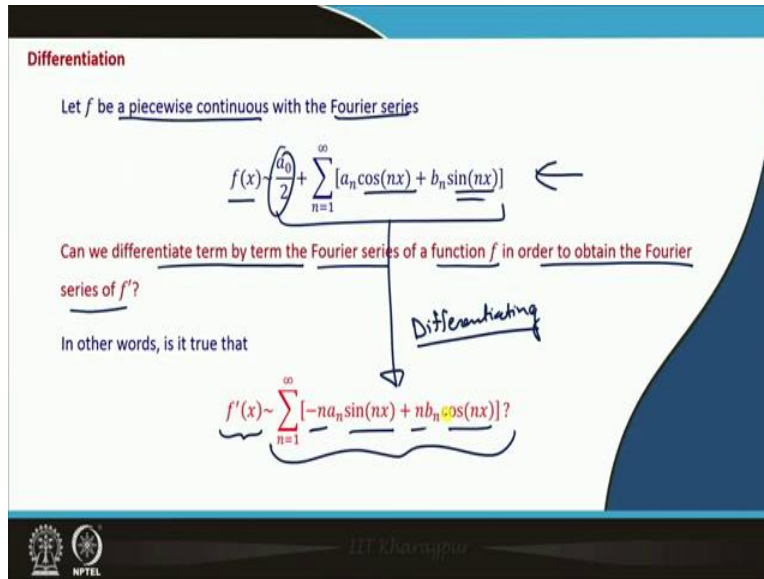 Differentiation
Let f be a piecewise continuous with the Fourier series
f(x)~a₀/2 + ∑_{n=1}^{∞} [aₙcos(nx) + bₙsin(nx)]
Can we differentiate term by term the Fourier series of a function f in order to obtain the Fourier
series of f′?
Differentiating
In other words, is it true that
f′(x)~ ∑_{n=1}^{∞} [−naₙsin(nx) + nbₙcos(nx)]?
NPTEL
IIT Kharagpur